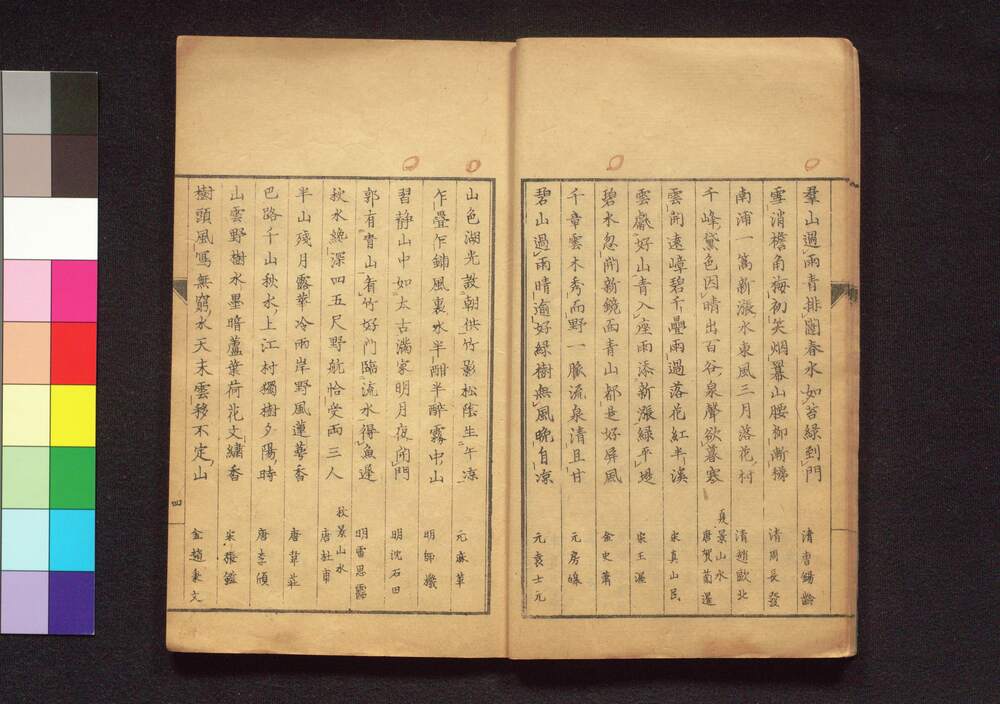 羣山過雨青排闥春水如苔綠到門　清曹錫齡
雪消檐角梅初笑烟羃山腰柳漸　清周長發
南浦一篙新漲水東風三月落花村　清趙歐北
千峰黛色因晴出百谷泉聲欲暮寒　夏景山水　唐賀蘭暹
雲開遠嶂碧千疊雨過落花紅半溪　宋真山民
雲歛好山青入座雨添新漲綠平堤　宋王
碧水忽開新鏡面青山都是好屏風　金史肅
千章雲木秀而野一脈流泉清且甘　元房皞
碧山過雨晴逾好綠樹無風晚自凉　元袁士元
山色湖光設朝供竹影松陰生午凉　元麻革
乍疊乍鋪風裏水半酣半醉霧中山　明
習靜山中如太古滿家明月夜開門　明沈石田
郭有青山看竹好門臨流水得魚遲　明雷思霈
秋水纔深四五尺野航恰受兩三人　秋景山水　唐杜甫
半山殘月露華冷兩岸野風蓮萼香　唐韋莊
巴路千山秋水上江村獨樹夕陽時　唐李頎
山雲野樹水墨暗蘆葉荷花文繡香　宋張鎡
樹頭風寫無窮水天末雲移不定山　金趙秉文
四